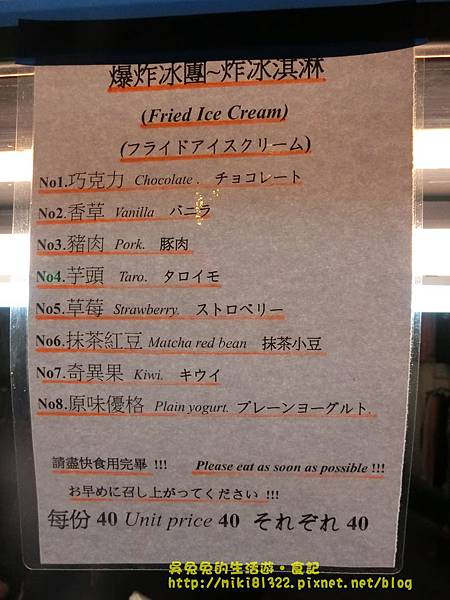 爆炸冰團~炸冰淇淋
(Fried Ice Cream)
(フライドアイスクリーム)
No1.巧克力 Chocolate . チョコレート
No2.香草 Vanilla バニラ
No3.豬肉 Pork. 豚肉
No4.芋頭 Taro. タロイモ
No5.草莓 Strawberry. ストロベリー
No6.抹茶紅豆 Matcha red bean 抹茶小豆
No7.奇異果 Kiwi. キウイ
No8.原味優格 Plain yogurt. プレーンヨーグルト
請盡快食用完畢 !!! Please eat as soon as possible !!!
お早めに召し上がってください !!!
每份 40 Unit price 40 それぞれ 40
吳兔兔的生活遊·食記
http://miki81322.pixnet.net/blog